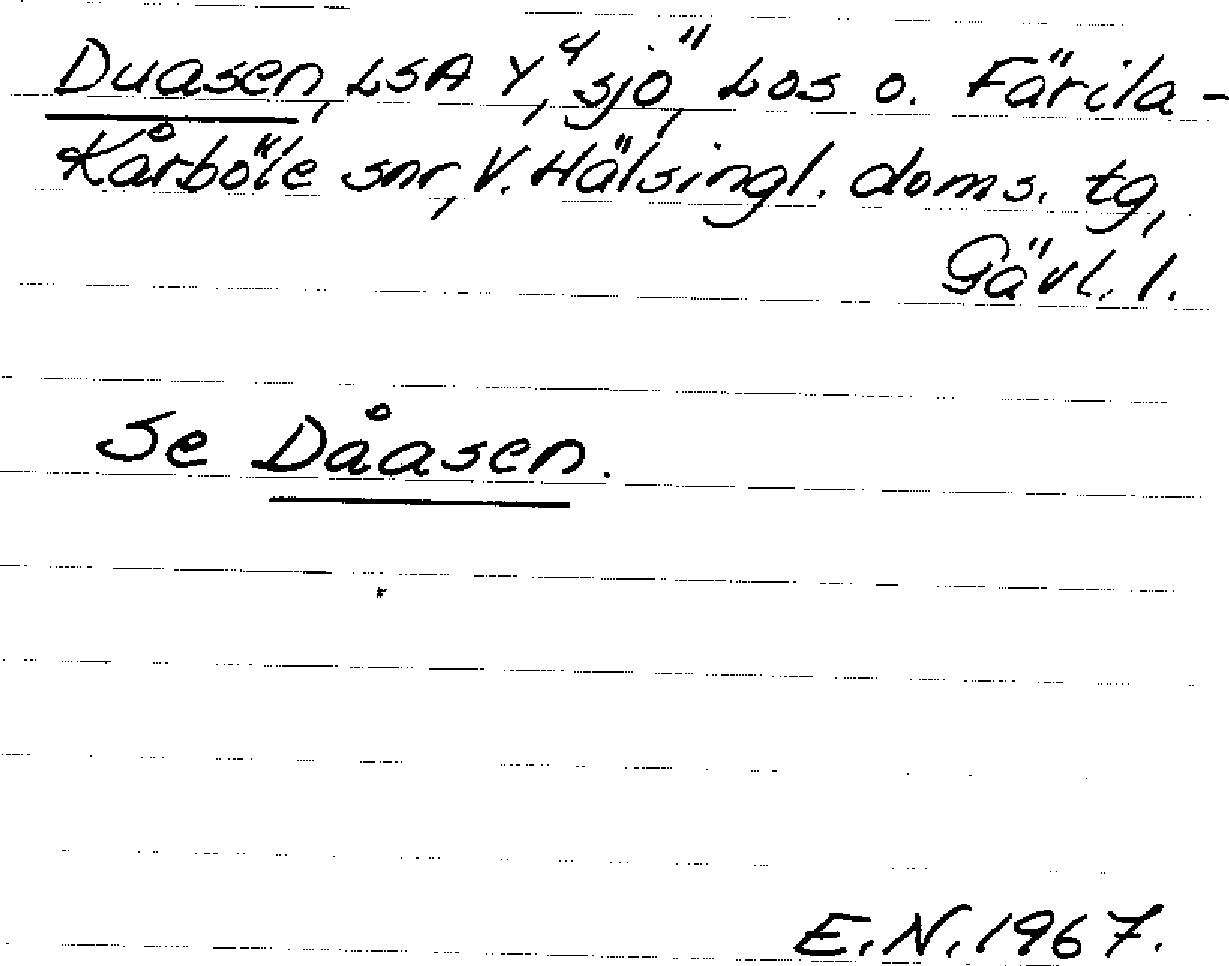 Duasen, LSA Y, "sjö", Los o. Färila-
Kårböle snr, V. Hälsingl. doms. tg,
Gävl. l.
Se Dåasen.
E.N. 1967.